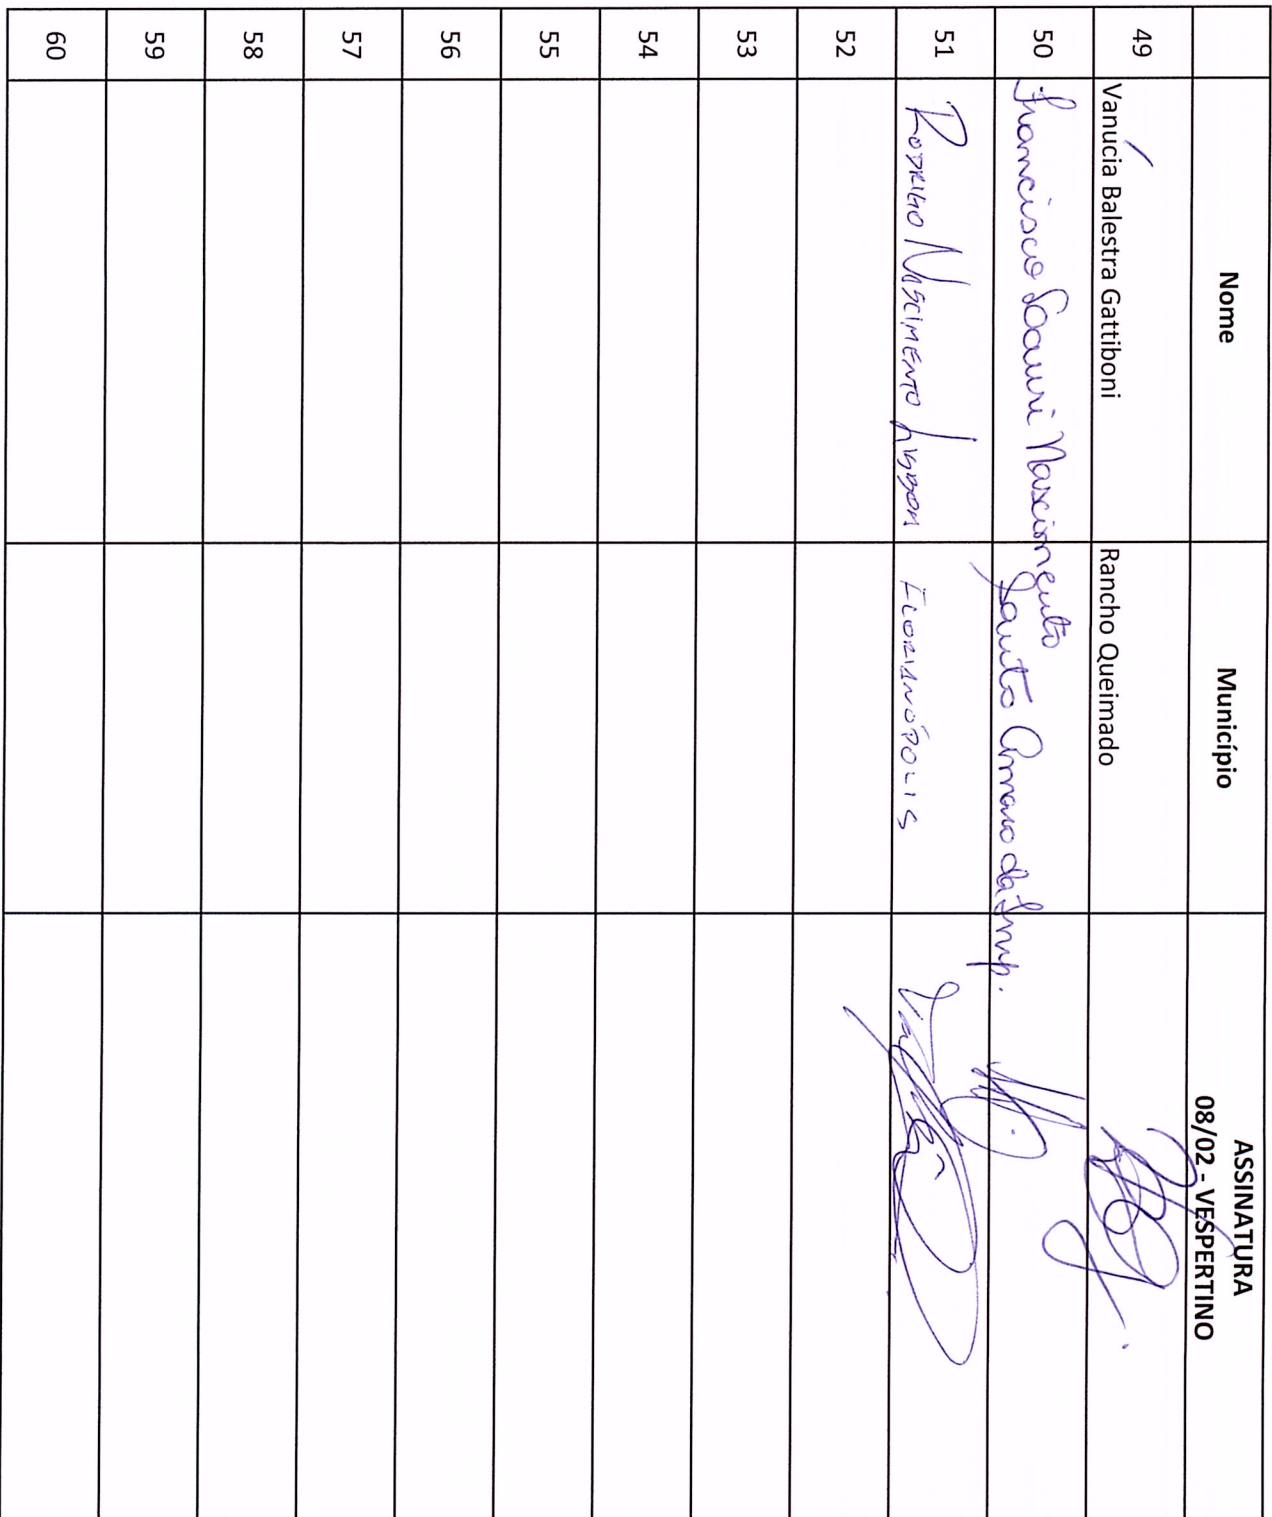 Nome Município ASSINATURA
08/02 - VESPERTINO
49 Vanúcia Balestra Gattiboni Rancho Queimado
50 Francisco Joauri Nascimento Santo Amaro da Imp.
51 RODRIGO NASCIMENTO LISBOA FLORIANÓPOLIS
52
53
54
55
56
57
58
59
60